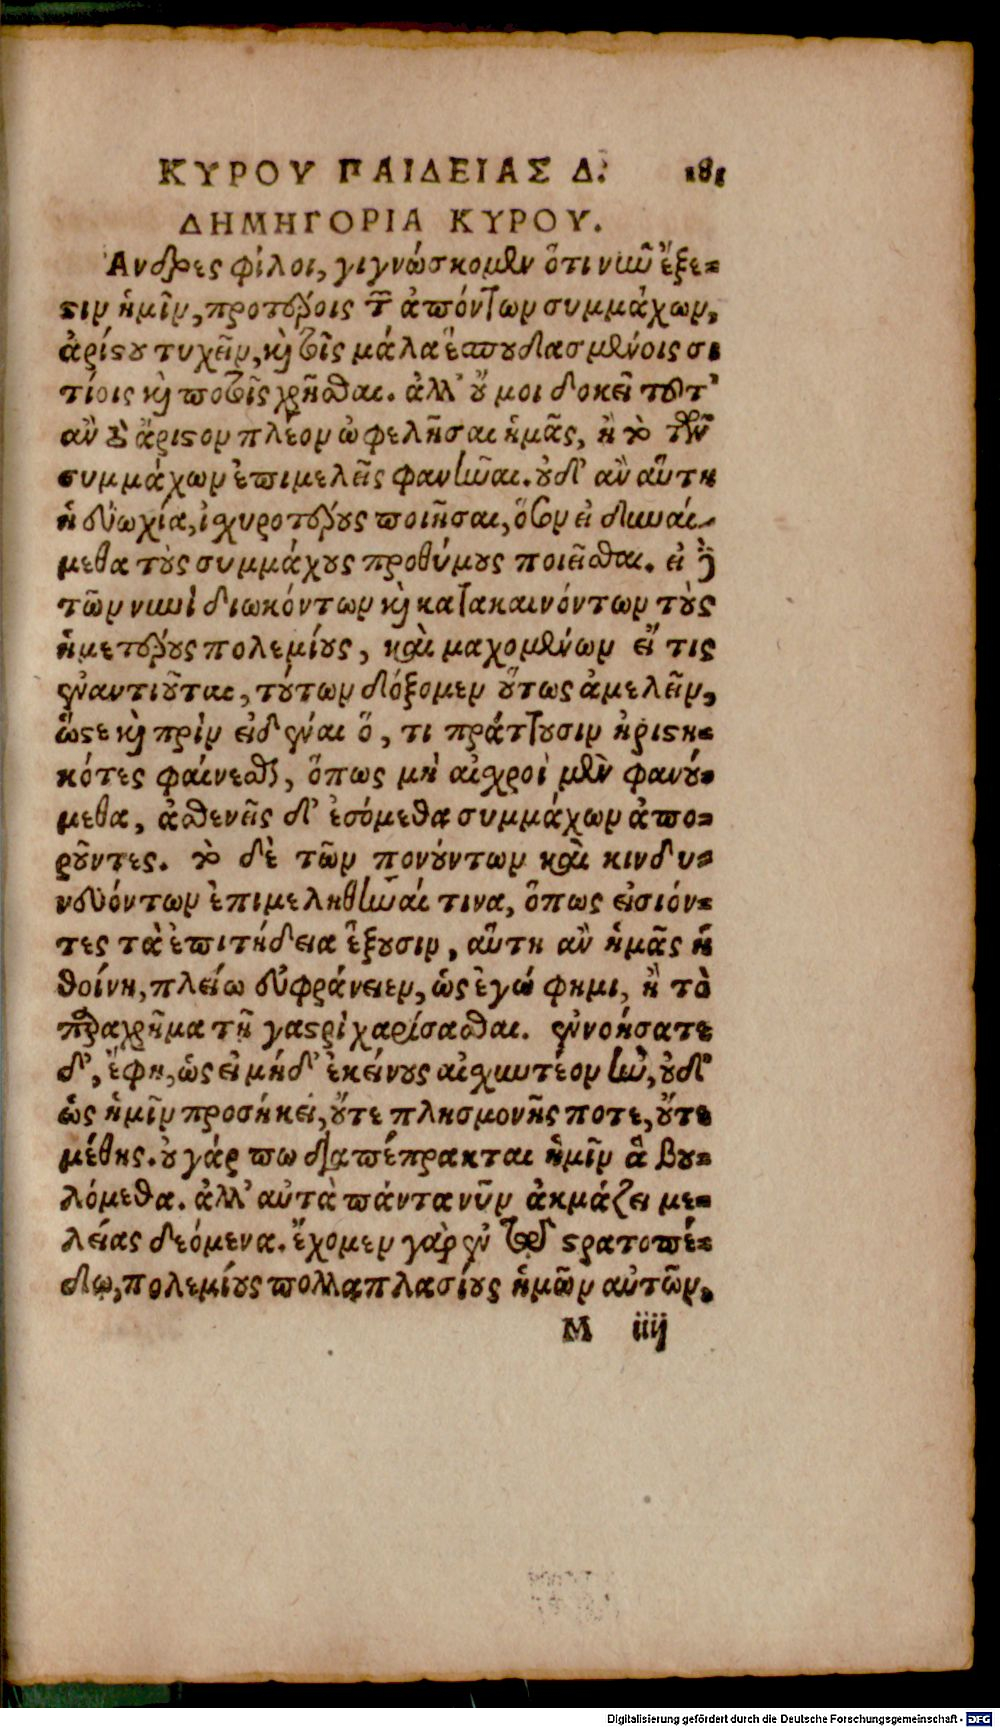 ΚΥΡΟΥ ΠΑΙΔΕΙΑΣ Δ. 181
ΔΗΜΗΓΟΡΙΑ ΚΥΡΟΥ.
Ανδρες φίλοι, γιγνώσκομεν ὅτι νυνὶ ἔξε-
στιν ἡμῖν, προτέροις τῶν ἀπόντων συμμάχων,
ἀρίστου τυχεῖν, καὶ τοῖς μάλα ἐσπουδασμένοις σι
τίοις καὶ ποτοῖς χρῆσθαι. ἀλλ' οὔ μοι δοκεῖ τοῦτ'
ἂν τὸ ἄριστον πλέον ὠφελῆσαι ἡμᾶς, ἢ τὸ τῶν
συμμάχων ἐπιμελεῖς φανῆναι. οὐδ' ἂν αὕτη
ἡ εὐωχία, ἰσχυροτέρους ποιῆσαι, ὅσον εἰ δυναί-
μεθα τοὺς συμμάχους προθύμους ποιεῖσθαι. εἰ δὲ
τῶν νυνὶ διωκόντων καὶ κατακαινόντων τοὺς
ἡμετέρους πολεμίους, καὶ μαχομένων εἴ τις
ἐναντιοῦται, τούτων δόξομεν οὕτως ἀμελεῖν,
ὥστε καὶ πρὶν εἰδέναι ὅ, τι πράττουσιν ἠριστη-
κότες φαίνεσθαι, ὅπως μὴ αἰσχροὶ μὲν φανού-
μεθα, ἀσθενεῖς δ' ἐσόμεθα συμμάχων ἀπο-
ροῦντες. τὸ δὲ τῶν πονούντων καὶ κινδυ-
νευόντων ἐπιμεληθῆναί τινα, ὅπως εἰσιόν-
τες τὰ ἐπιτήδεια ἕξουσιν, αὕτη ἂν ἡμᾶς ἡ
θοίνη, πλείω εὐφράνειεν, ὡς ἐγώ φημι, ἢ τὸ
παραχρῆμα τῇ γαστρὶ χαρίσασθαι. ἐννοήσατε
δ', ἔφη, ὡς εἰ μήδ' ἐκείνους αἰσχυντέον ἦν, οὐδ'
ὡς ἡμῖν προσήκει, οὔτε πλησμονῆς ποτε, οὔτε
μέθης. οὐ γάρ πω διαπέπρακται ἡμῖν ἃ βου-
λόμεθα. ἀλλ' αὐτὰ πάντα νῦν ἀκμάζει με-
λείας δεόμενα. ἔχομεν γὰρ ἐν τῷ στρατοπέ-
δῳ, πολεμίους πολλαπλασίους ἡμῶν αὐτῶν,
M iiij
Digitalisierung gefördert durch die Deutsche Forschungsgemeinschaft - DFG